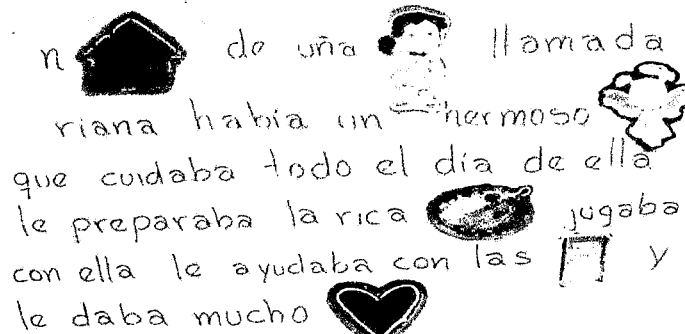 n de uña llamada
riana había un hermoso
que cuidaba todo el día de ella
le preparaba la rica jugaba
con ella le ayudaba con las y
le daba mucho